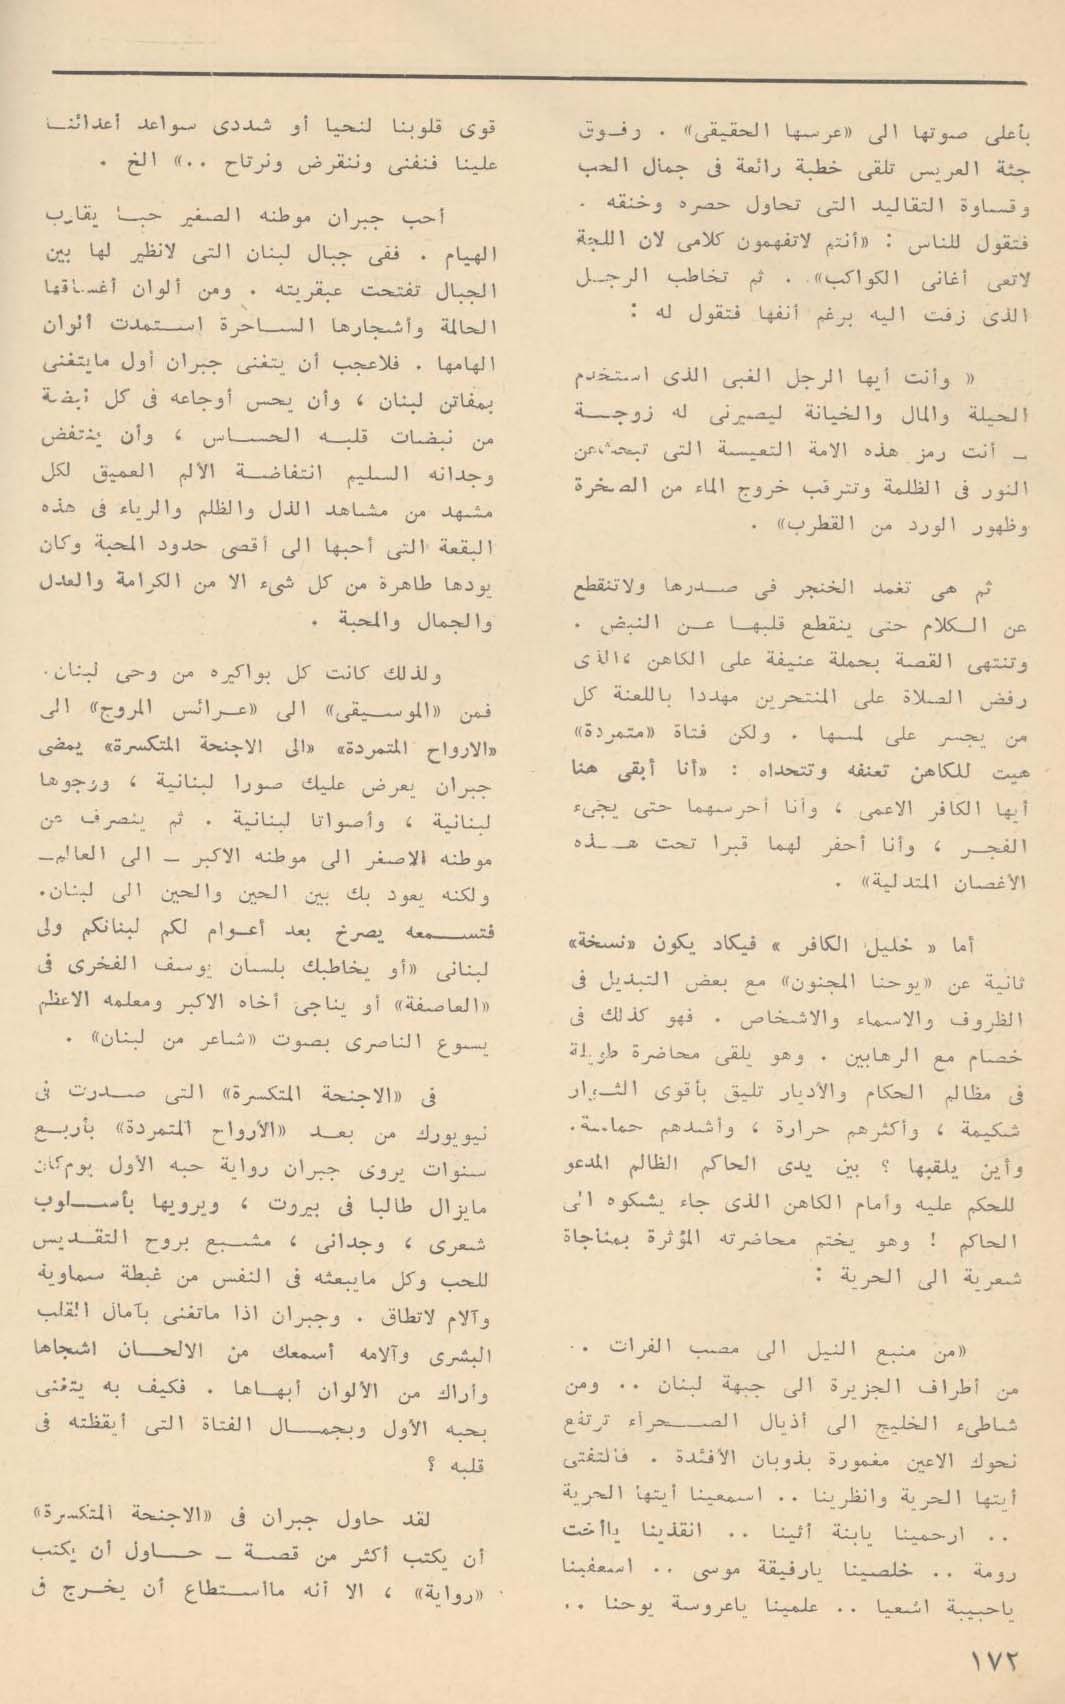 بأعلى صوتها الى «عرسها الحقيقى» . وفوق
جثة العريس تلقى خطبة رائعة فى جمال الحب
وقساوة التقاليد التى تحاول حصره وخنقه .
فتقول للناس : «أنتم لاتفهمون كلامى لان اللجة
لاتعى أغانى الكواكب» . ثم تخاطب الرجل
الذى زفت اليه برغم أنفها فتقول له :
« وأنت أيها الرجل الغبى الذى استخدم
الحيلة والمال والخيانة ليصيرنى له زوجة
ـ أنت رمز هذه الامة التعيسة التى تبحث عن
النور فى الظلمة وتترقب خروج الماء من الصخرة
وظهور الورد من القطرب» .
ثم هى تغمد الخنجر فى صدرها ولاتنقطع
عن الكلام حتى ينقطع قلبها عن النبض .
وتنتهى القصة بحملة عنيفة على الكاهن ،الذى
رفض الصلاة على المنتحرين مهددا باللعنة كل
من يجسر على لمسها . ولكن فتاة «متمردة»
هبت للكاهن تعنفه وتتحداه : «أنا أبقى هنا
أيها الكافر الاعمى ، وأنا أحرسهما حتى يجىء
الفجر ، وأنا أحفر لهما قبرا تحت هذه
الأغصان المتدلية» .
أما « خليل الكافر » فيكاد يكون «نسخة»
ثانية عن «يوحنا المجنون» مع بعض التبديل فى
الظروف والاسماء والاشخاص . فهو كذلك فى
خصام مع الرهابين . وهو يلقى محاضرة طويلة
فى مظالم الحكام والأديار تليق بأقوى الثوار
شكيمة ، وأكثرهم حرارة ، وأشدهم حماسة.
وأين يلقيها ؟ بين يدى الحاكم الظالم المدعو
للحكم عليه وأمام الكاهن الذى جاء يشكوه الى
الحاكم ! وهو يختم محاضرته المؤثرة بمناجاة
شعرية الى الحرية :
«من منبع النيل الى مصب الفرات ..
من أطراف الجزيرة الى جبهة لبنان .. ومن
شاطىء الخليج الى أذيال الصحراء ترتفع
نحوك الاعين مغمورة بذوبان الأفئدة . فالتفتى
أيتها الحرية وانظرينا .. اسمعينا أيتها الحرية
.. ارحمينا يابنة أثينا .. انقذينا ياأخت
رومة .. خلصينا يارفيقة موسى .. اسعفينا
ياحبيبة اشعيا .. علمينا ياعروسة يوحنا ..
قوى قلوبنا لنحيا أو شددى سواعد أعدائنا
علينا فنفنى وننقرض ونرتاح ..» الخ .
أحب جبران موطنه الصغير حبا يقارب
الهيام . ففى جبال لبنان التى لانظير لها بين
الجبال تفتحت عبقريته . ومن ألوان أغساقها
الحالمة وأشجارها الساحرة استمدت ألوان
الهامها . فلاعجب أن يتغنى جبران أول مايتغنى
بمفاتن لبنان ، وأن يحس أوجاعه فى كل نبضة
من نبضات قلبه الحساس ، وأن ينتفض
وجدانه السليم انتفاضة الألم العميق لكل
مشهد من مشاهد الذل والظلم والرياء فى هذه
البقعة التى أحبها الى أقصى حدود المحبة وكان
يودها طاهرة من كل شىء الا من الكرامة والعدل
والجمال والمحبة .
ولذلك كانت كل بواكيره من وحى لبنان.
فمن «الموسيقى» الى «عرائس المروج» الى
«الارواح المتمردة» «الى الاجنحة المتكسرة» يمضى
جبران يعرض عليك صورا لبنانية ، ووجوها
لبنانية ، وأصواتا لبنانية . ثم ينصرف عن
موطنه الاصغر الى موطنه الاكبر ـ الى العالم ـ
ولكنه يعود بك بين الحين والحين الى لبنان.
فتسمعه يصرخ بعد أعوام لكم لبنانكم ولى
لبنانى «أو يخاطبك بلسان يوسف الفخرى فى
«العاصفة» أو يناجى أخاه الاكبر ومعلمه الاعظم
يسوع الناصرى بصوت «شاعر من لبنان» .
فى «الاجنحة المتكسرة» التى صدرت فى
نيويورك من بعد «الأرواح المتمردة» بأربع
سنوات يروى جبران رواية حبه الأول يوم كان
مايزال طالبا فى بيروت ، ويرويها بأسلوب
شعرى ، وجدانى ، مشبع بروح التقديس
للحب وكل مايبعثه فى النفس من غبطة سماوية
وآلام لاتطاق . وجبران اذا ماتغنى بآمال القلب
البشرى وآلامه أسمعك من الالحان اشجاها
وأراك من الألوان أبهاها . فكيف به يتغنى
بحبه الأول وبجمال الفتاة التى أيقظته فى
قلبه ؟
لقد حاول جبران فى «الاجنحة المتكسرة»
أن يكتب أكثر من قصة ـ حاول أن يكتب
«رواية» ، الا أنه مااستطاع أن يخرج فى
١٧٢